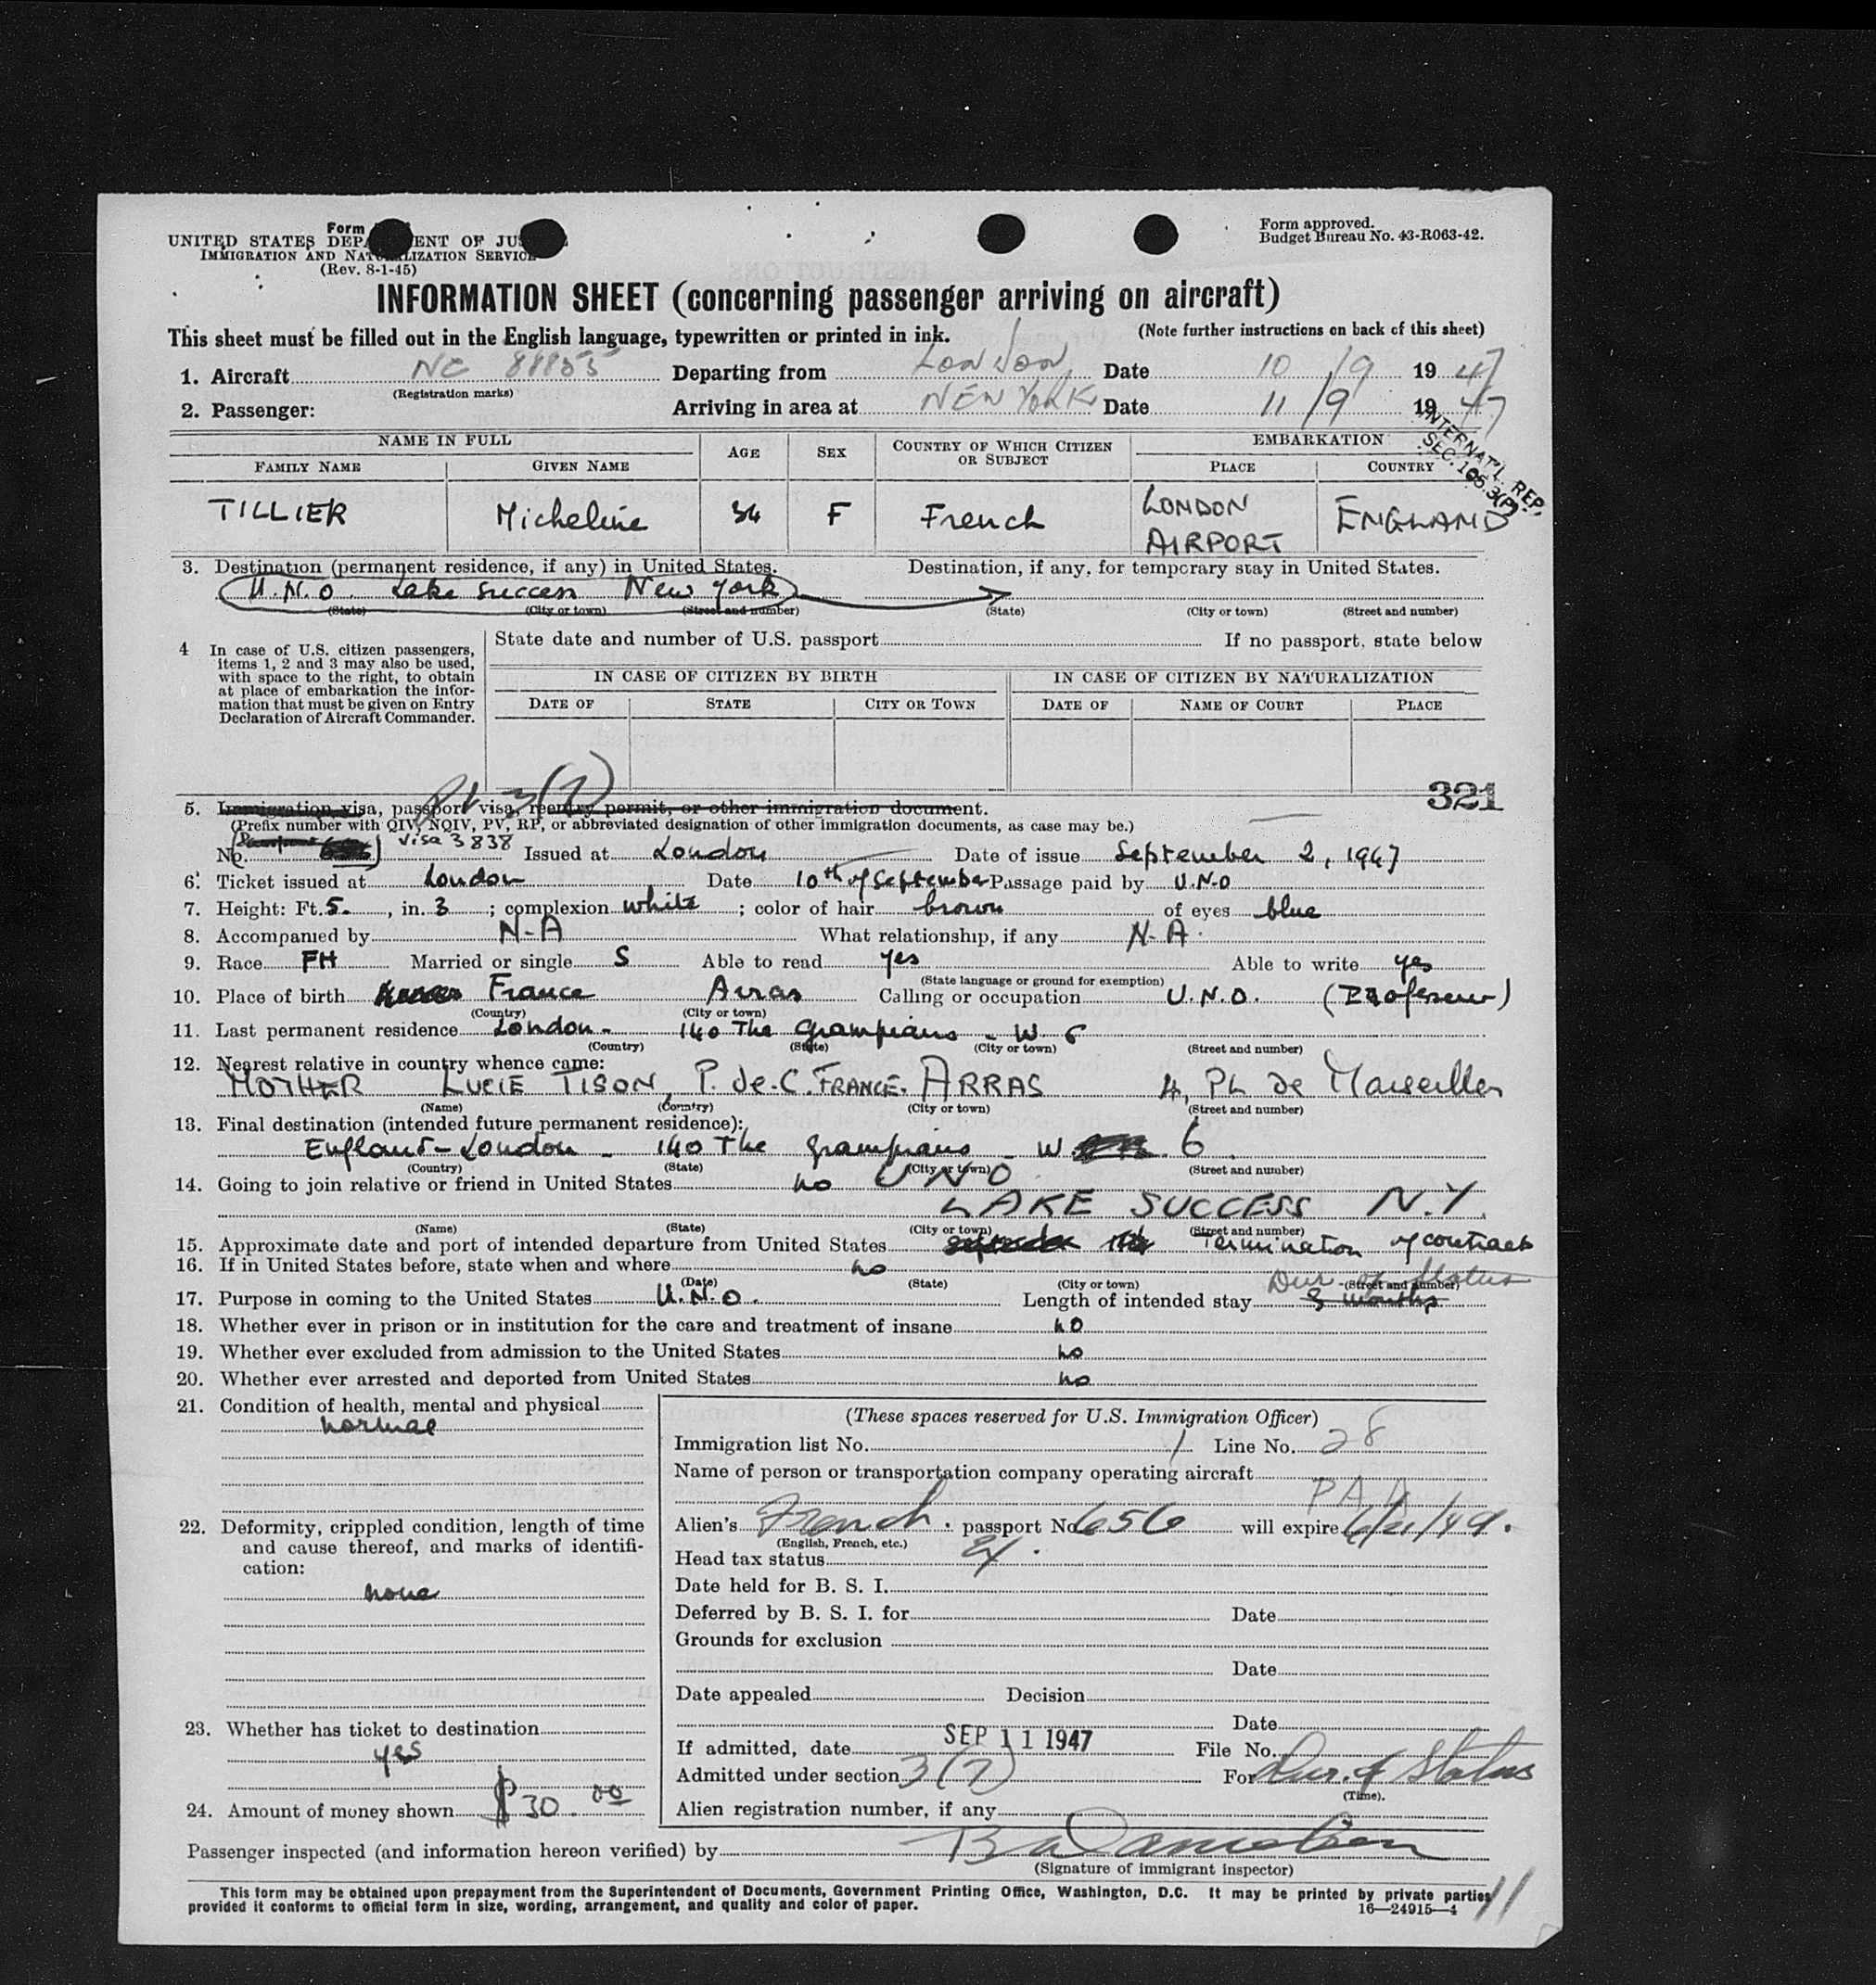 Form
UNITED STATES DEPA ENT OF JUS
IMMIGRATION AND NATURALIZATION SERVICE
(Rev. 8-1-45)
Form approved.
Budget Bureau No. 43-R063-42.
INFORMATION SHEET (concerning passenger arriving on aircraft)
This sheet must be filled out in the English language, typewritten or printed in ink. (Note further instructions on back of this sheet)
1. Aircraft NC 88855 Departing from LONDON Date 10/9 1947
(Registration marks)
2. Passenger: Arriving in area at NEW YORK Date 11/9 1947
INTERNAT'L. REP.
SEC. 10 5.3(P)
NAME IN FULL AGE SEX COUNTRY OF WHICH CITIZEN OR SUBJECT EMBARKATION
FAMILY NAME GIVEN NAME PLACE COUNTRY
TILLIER Micheline 34 F French LONDON AIRPORT ENGLAND
3. Destination (permanent residence, if any) in United States. Destination, if any, for temporary stay in United States.
U.N.O. Lake Success New York
(State) (City or town) (Street and number) (State) (City or town) (Street and number)
4 In case of U.S. citizen passengers, items 1, 2 and 3 may also be used, with space to the right, to obtain at place of embarkation the information that must be given on Entry Declaration of Aircraft Commander.
State date and number of U.S. passport If no passport, state below
IN CASE OF CITIZEN BY BIRTH IN CASE OF CITIZEN BY NATURALIZATION
DATE OF STATE CITY OR TOWN DATE OF NAME OF COURT PLACE
3(7)
321
5. Immigration visa, passport visa, reentry permit, or other immigration document.
(Prefix number with QIV, NQIV, PV, RP, or abbreviated designation of other immigration documents, as case may be.)
No. Visa 3838 Issued at London Date of issue September 2, 1947
6. Ticket issued at London Date 10th of September Passage paid by U.N.O
7. Height: Ft. 5. , in. 3 ; complexion white ; color of hair brown of eyes blue
8. Accompanied by N-A What relationship, if any N-A.
9. Race FH Married or single S Able to read yes Able to write yes
(State language or ground for exemption)
10. Place of birth France Arras Calling or occupation U.N.O. (Professeur)
(Country) (City or town)
11. Last permanent residence London - 140 The Grampians - W 6
(Country) (State) (City or town) (Street and number)
12. Nearest relative in country whence came:
MOTHER LUCIE TISON, P. de.C. FRANCE. ARRAS 4, PL de Marseilles
(Name) (Country) (City or town) (Street and number)
13. Final destination (intended future permanent residence):
England - London - 140 The Grampians - W. 6.
(Country) (State) (City or town) (Street and number)
14. Going to join relative or friend in United States no UNO
LAKE SUCCESS N.Y.
(Name) (State) (City or town) (Street and number)
15. Approximate date and port of intended departure from United States Termination of contract
16. If in United States before, state when and where no
(Date) (State) (City or town) (Street and number)
Dur. of Status
17. Purpose in coming to the United States U.N.O. Length of intended stay 3 months
18. Whether ever in prison or in institution for the care and treatment of insane no
19. Whether ever excluded from admission to the United States no
20. Whether ever arrested and deported from United States no
21. Condition of health, mental and physical
normal
22. Deformity, crippled condition, length of time and cause thereof, and marks of identification:
none
23. Whether has ticket to destination
yes
24. Amount of money shown $30.00
(These spaces reserved for U.S. Immigration Officer)
Immigration list No. 1 Line No. 28
Name of person or transportation company operating aircraft
PAA
Alien's French. passport No. 656 will expire 6/21/49.
(English, French, etc.)
Head tax status
Date held for B. S. I.
Deferred by B. S. I. for Date
Grounds for exclusion
Date
Date appealed Decision
Date
If admitted, date SEP 11 1947 File No.
Admitted under section 3(7) For Dur. of Status
(Time).
Alien registration number, if any
Passenger inspected (and information hereon verified) by
(Signature of immigrant inspector)
This form may be obtained upon prepayment from the Superintendent of Documents, Government Printing Office, Washington, D.C. It may be printed by private parties
provided it conforms to official form in size, wording, arrangement, and quality and color of paper. 16—24915—4
11